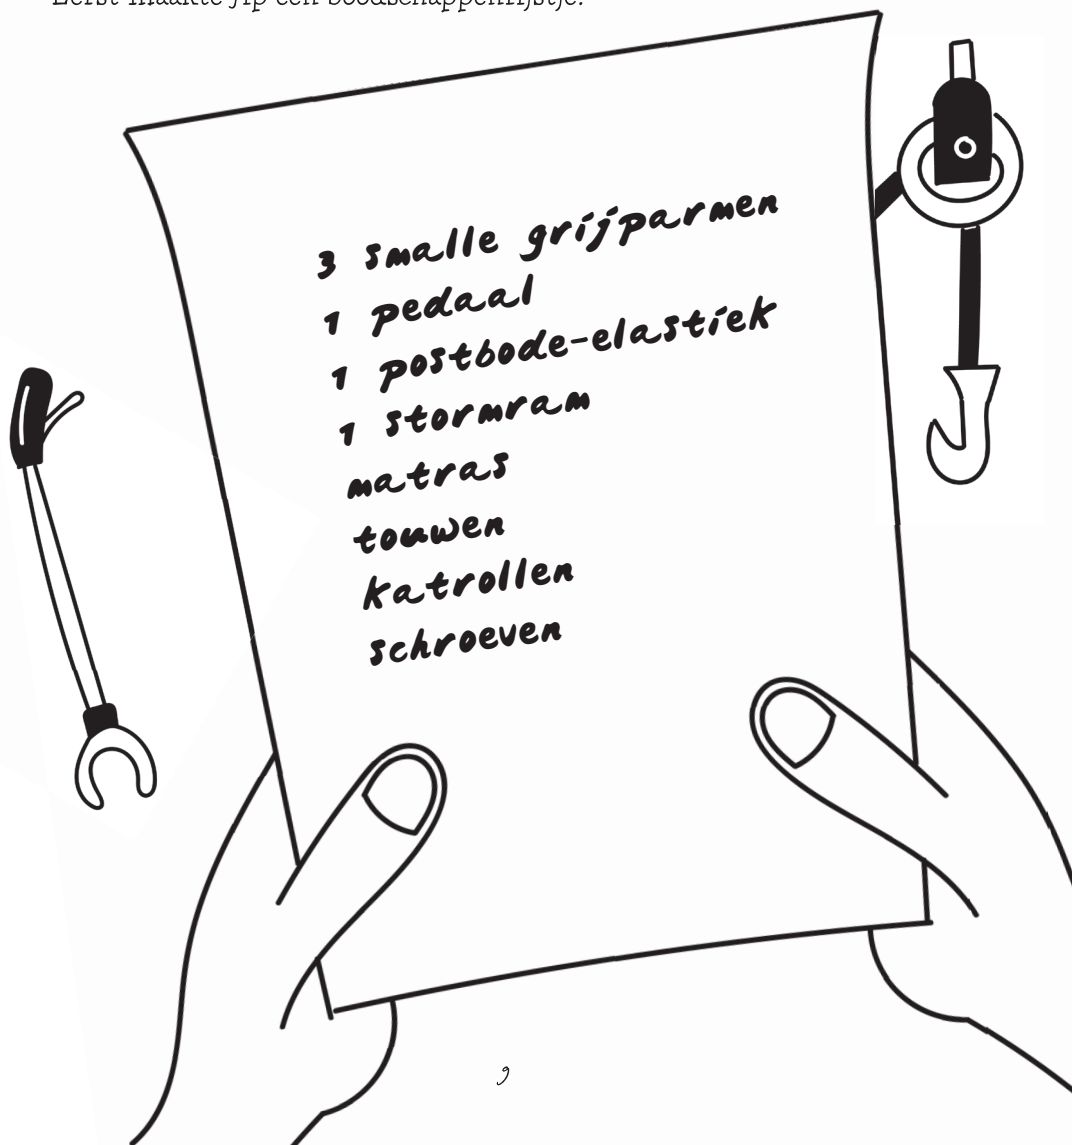 Eerst maakte Jip een boodschappenlijstje.
3 smalle grijparmen
1 pedaal
1 postbode-elastiek
1 stormram
matras
touwen
katrollen
schroeven
9